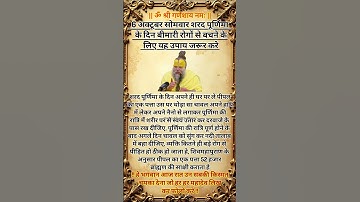 || ॐ श्री गणेशाय नमः ||
6 अक्टूबर सोमवार शरद पूर्णिमा
के दिन बीमारी रोगों से बचने के
लिए यह उपाय जरूर करें
शरद पूर्णिमा के दिन अपने ही घर पर ले पीपल
का एक पत्ता उस पर थोड़ा सा चावल अपने हाथ
में लेकर अपने नैनो से लगाकर पूर्णिमा की
रात्रि में शरीर पर से स्वयं उतार कर दरवाजे के
पास रख दीजिए, पूर्णिमा की रात्रि पूर्ण होने के
बाद अगले दिन चावल को सुंघ कर नदी तालाब
में बहा दीजिए, व्यक्ति कितने ही बड़े रोग से
पीड़ित हो ठीक हो जाता है, शिवमहापुराण के
अनुसार पीपल का एक पत्ता 52 हजार
ब्राह्मण की साक्षी कराता है
हे भगवान आज रात उन सबकी किस्मत
चमका देना जो हर हर महादेव लिख
कर फॉलो करे